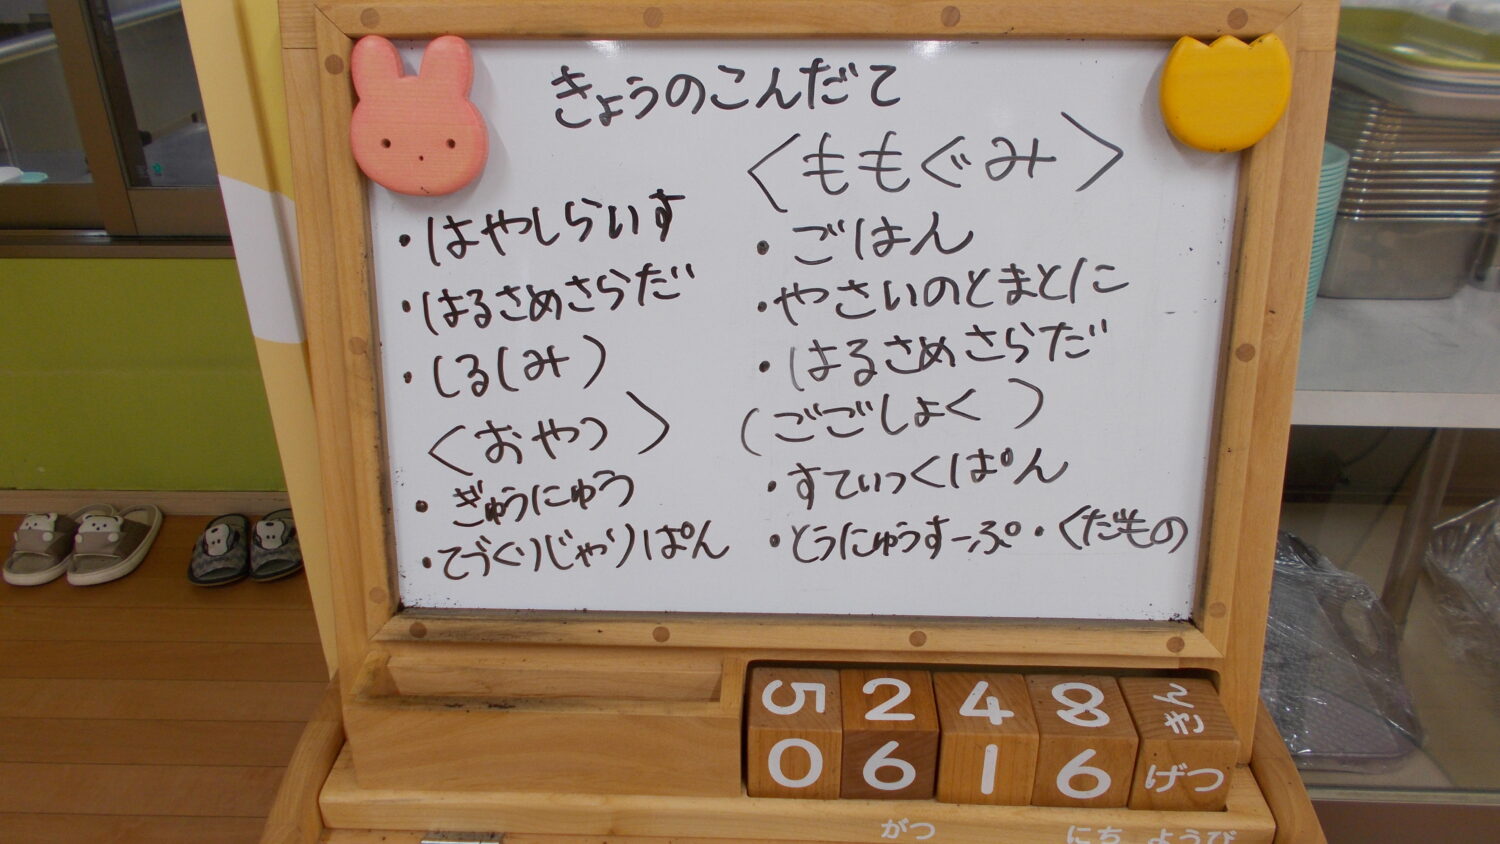 きょうのこんだて
・はやしらいす
・はるさめさらだ
・しる(み)
〈おやつ〉
・ぎゅうにゅう
・てづくりじゃりぱん
〈ももぐみ〉
・ごはん
・やさいのとまとに
・はるさめさらだ
(ごごしょく)
・すてぃっくぱん
・とうにゅうすーぷ・くだもの
5 2 4 8 きん
0 6 1 6 げつ
がつ にち ようび